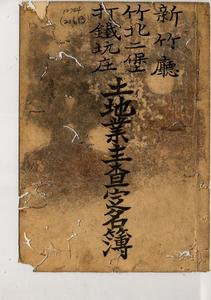 新竹廳
竹北二堡
打鐵坑庄
土地業主查定名簿